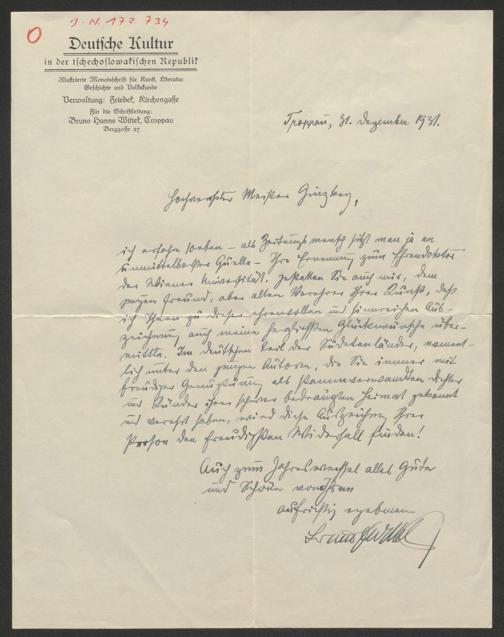 J.-N. 172.734
Deutsche Kultur
in der tschechoslowakischen Republik
Illustrierte Monatsschrift für Kunst, Literatur
Geschichte und Volkskunde
Verwaltung: Friedek, Kirchengasse
Für die Schriftleitung:
Bruno Hanns Wittek, Troppau
Berggasse 27
Troppau, 31. Dezember 1931.
Hochverehrter Meister Ginzkey,
ich erfahre soeben – als Zeitungsmensch sitzt man ja an
unmittelbarster Quelle – Ihre Ernennung zum Ehrendoktor
der Wiener Universität. Gestatten Sie auch mir, dem
jungen Freund, aber alten Verehrer Ihrer Kunst, daß
ich Ihnen zu dieser ehrenvollen und sinnreichen Aus-
zeichnung auch meine herzlichsten Glückwünsche über-
mittle. Im deutschen Teil der Sudetenländer, nament-
lich unter den jungen Autoren, die Sie immer mit
freudiger Genugtuung als stammverwandten Dichter
und Künder ihrer schwer bedrängten Heimat gekannt
und verehrt haben, wird diese Auszeichnung Ihrer
Person den freudigsten Widerhall finden!
Auch zum Jahreswechsel alles Gute
und Schöne von Ihrem
aufrichtig ergebenen